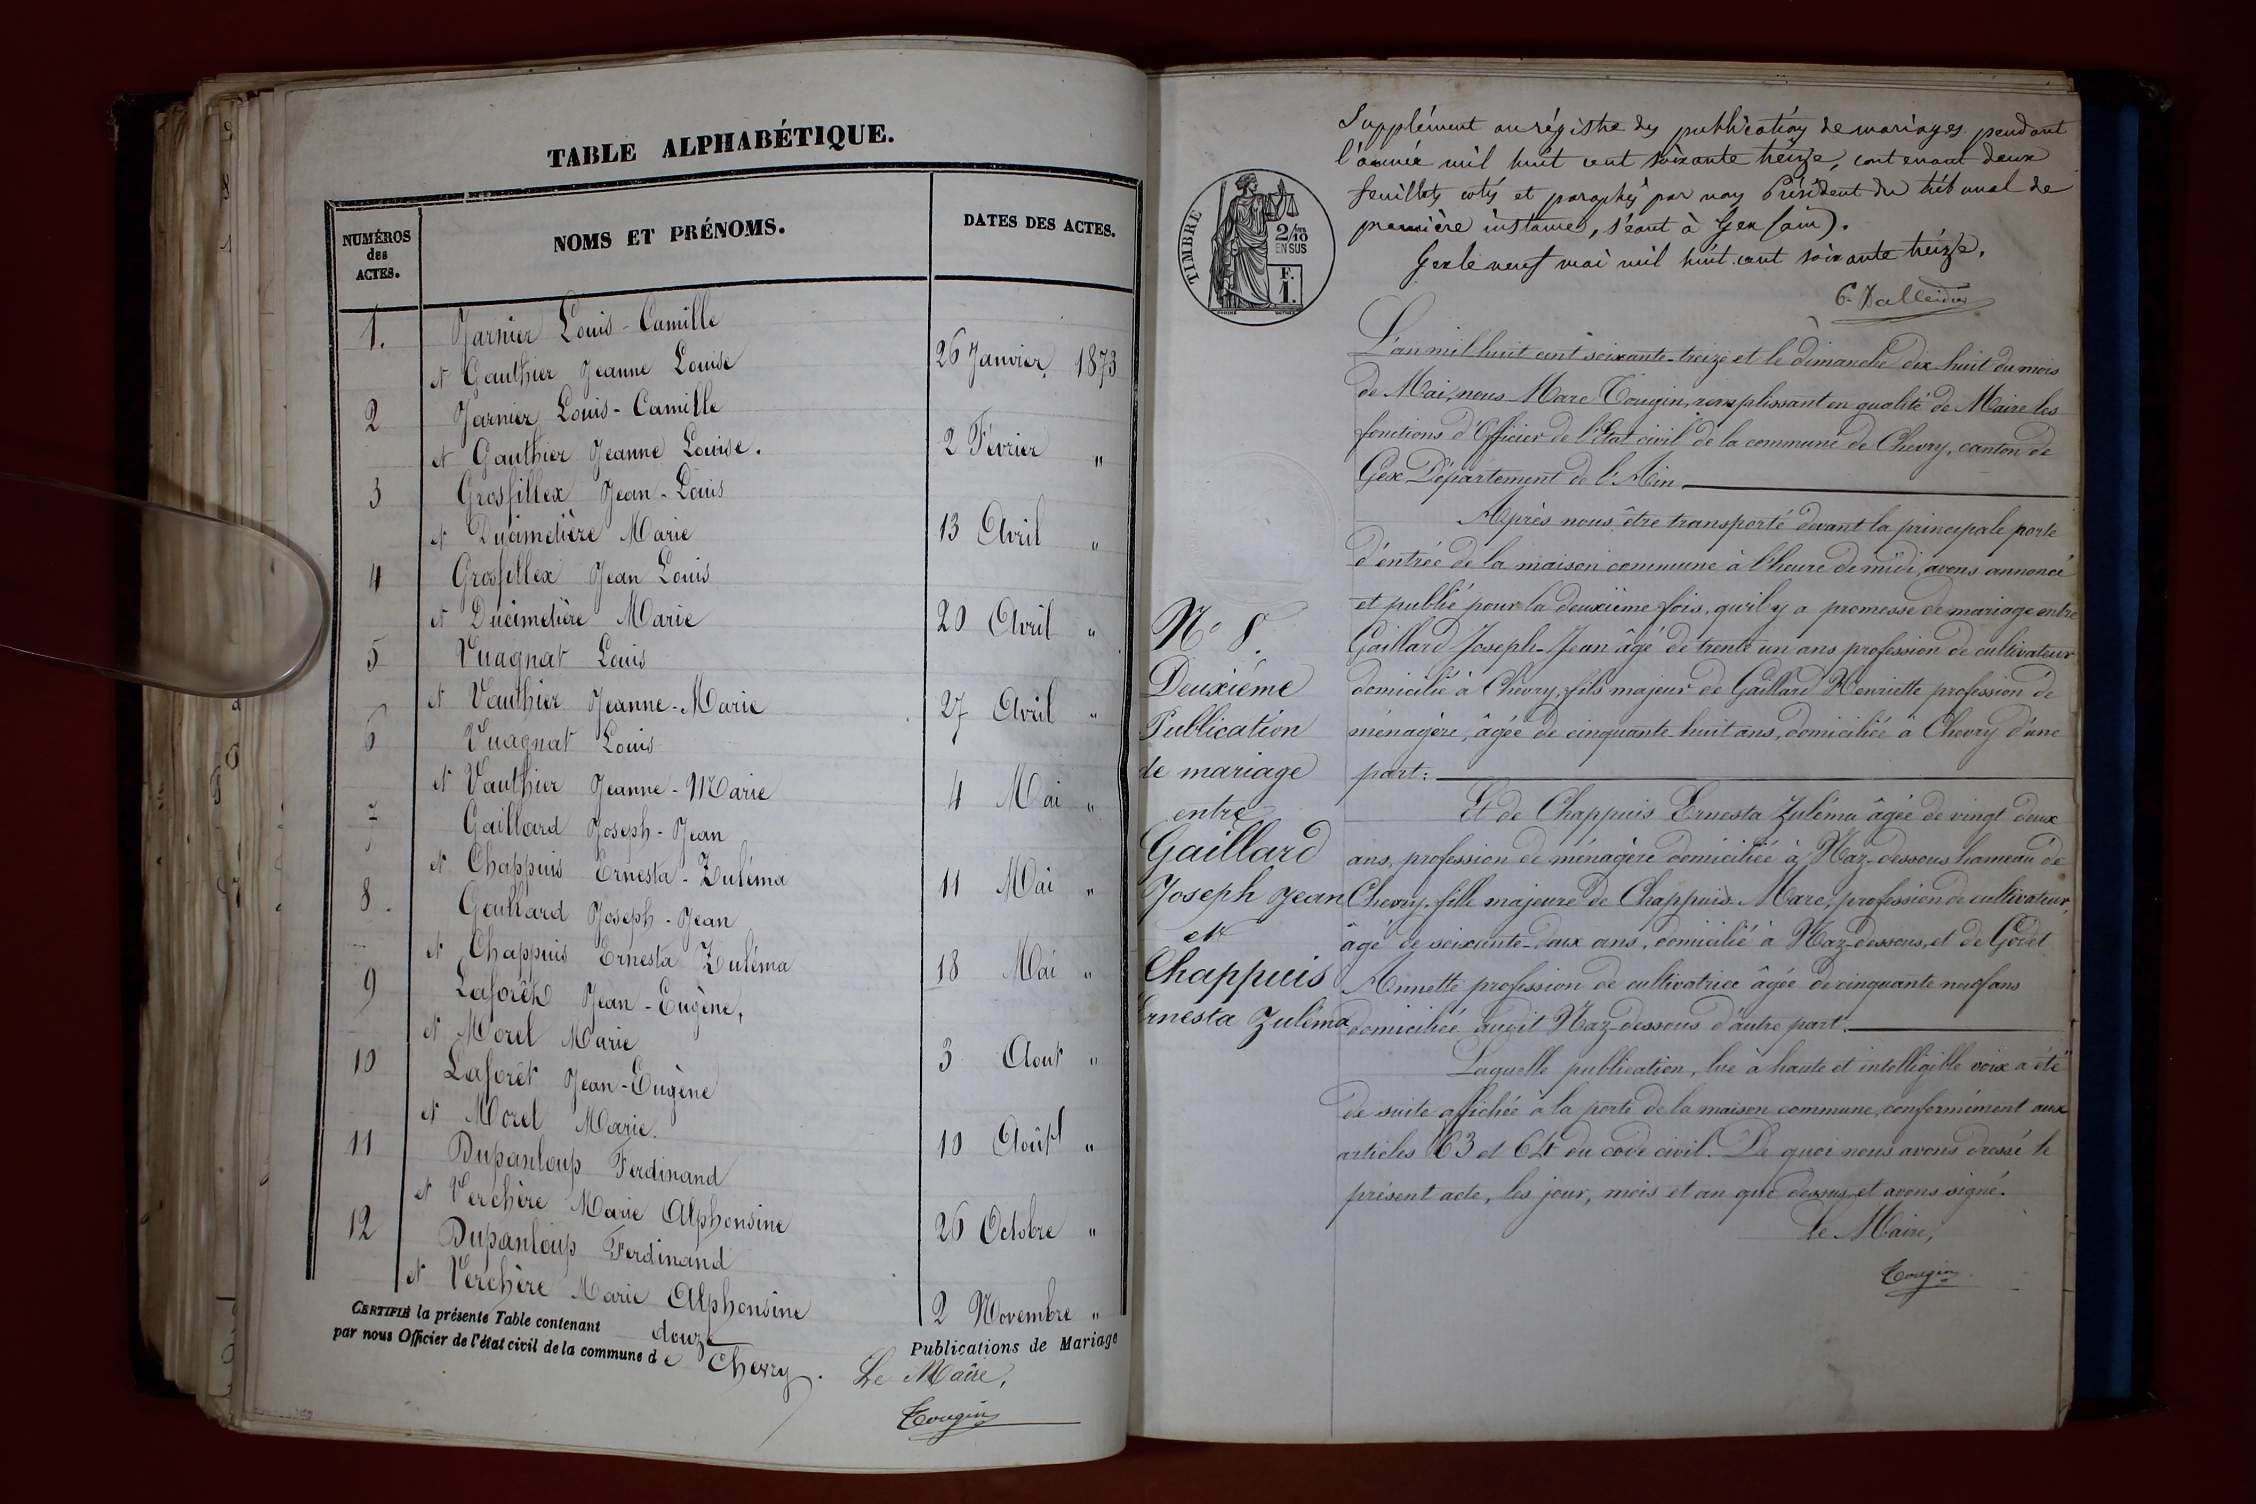 TABLE ALPHABÉTIQUE.
NUMÉROS des ACTES.
NOMS ET PRÉNOMS.
DATES DES ACTES.
1. Jarnier Louis-Camille
et Gauthier Jeanne Louise 26 Janvier 1873
2 Jarnier Louis-Camille
et Gauthier Jeanne Louise. 2 Février "
3 Grosfillex Jean-Louis
et Ducimetière Marie 13 Avril "
4 Grosfillex Jean Louis
et Ducimetière Marie 20 Avril "
5 Vuagnat Louis
et Vauthier Jeanne-Marie 27 Avril "
6 Vuagnat Louis
et Vauthier Jeanne-Marie 4 Mai "
7 Gaillard Joseph-Jean
et Chappuis Ernesta-Zuléma 11 Mai "
8 Gaillard Joseph-Jean
et Chappuis Ernesta Zuléma 18 Mai "
9 Laforêt Jean-Eugène,
et Morel Marie 3 Aout "
10 Laforêt Jean-Eugène
et Morel Marie. 10 Août "
11 Dupanloup Ferdinand
et Verchère Marie Alphonsine 26 Octobre "
12 Dupanloup Ferdinand
et Verchère Marie Alphonsine 2 Novembre "
CERTIFIÉ la présente Table contenant douze Publications de Mariage
par nous Officier de l'état civil de la commune de Chevry.
Le Maire,
Tougin
Supplément au régistre des publications de mariages pendant
l'année mil huit cent soixante treize, contenant deux
feuillets cotés et paraphés par nous Président du tribunal de
première instance, séant à Gex (ain).
Gex le neuf mai mil huit cent soixante treize.
TIMBRE
2/10
EN SUS
F.
1.
L'an mil huit cent soixante-treize et le dimanche dix huit du mois
de Mai, nous Marc Tougin, remplissant en qualité de Maire les
fonctions d'Officier de l'Etat civil de la commune de Chevry, canton de
Gex Département de l'Ain
Après nous être transporté devant la principale porte
d'entrée de la maison commune à l'heure de midi, avons annoncé
et publié pour la deuxième fois, qu'il y a promesse de mariage entre
Gaillard Joseph-Jean âgé de trente un ans profession de cultivateur
domicilié à Chevry, fils majeur de Gaillard Henriette profession de
ménagère, âgée de cinquante-huit ans, domiciliée à Chevry d'une
part:
Et de Chappuis Ernesta Zuléma âgée de vingt deux
ans, profession de ménagère domiciliée à Naz-dessous hameau de
Chevry, fille majeure de Chappuis Marc, profession de cultivateur,
âgé de soixante-deux ans, domicilié à Naz-dessous, et de Godet
Annette profession de cultivatrice âgée de cinquante neuf ans
domiciliée audit Naz-dessous d'autre part.
Laquelle publication, lue à haute et intelligible voix a été
de suite affichée à la porte de la maison commune, conformément aux
articles 63 et 64 du code civil. De quoi nous avons dressé le
présent acte, les jour, mois et an que dessus, et avons signé.
Le Maire,
Tougin
No 8.
Deuxième
Publication
de mariage
entre
Gaillard
Joseph Jean
et
Chappuis
Ernesta Zuléma